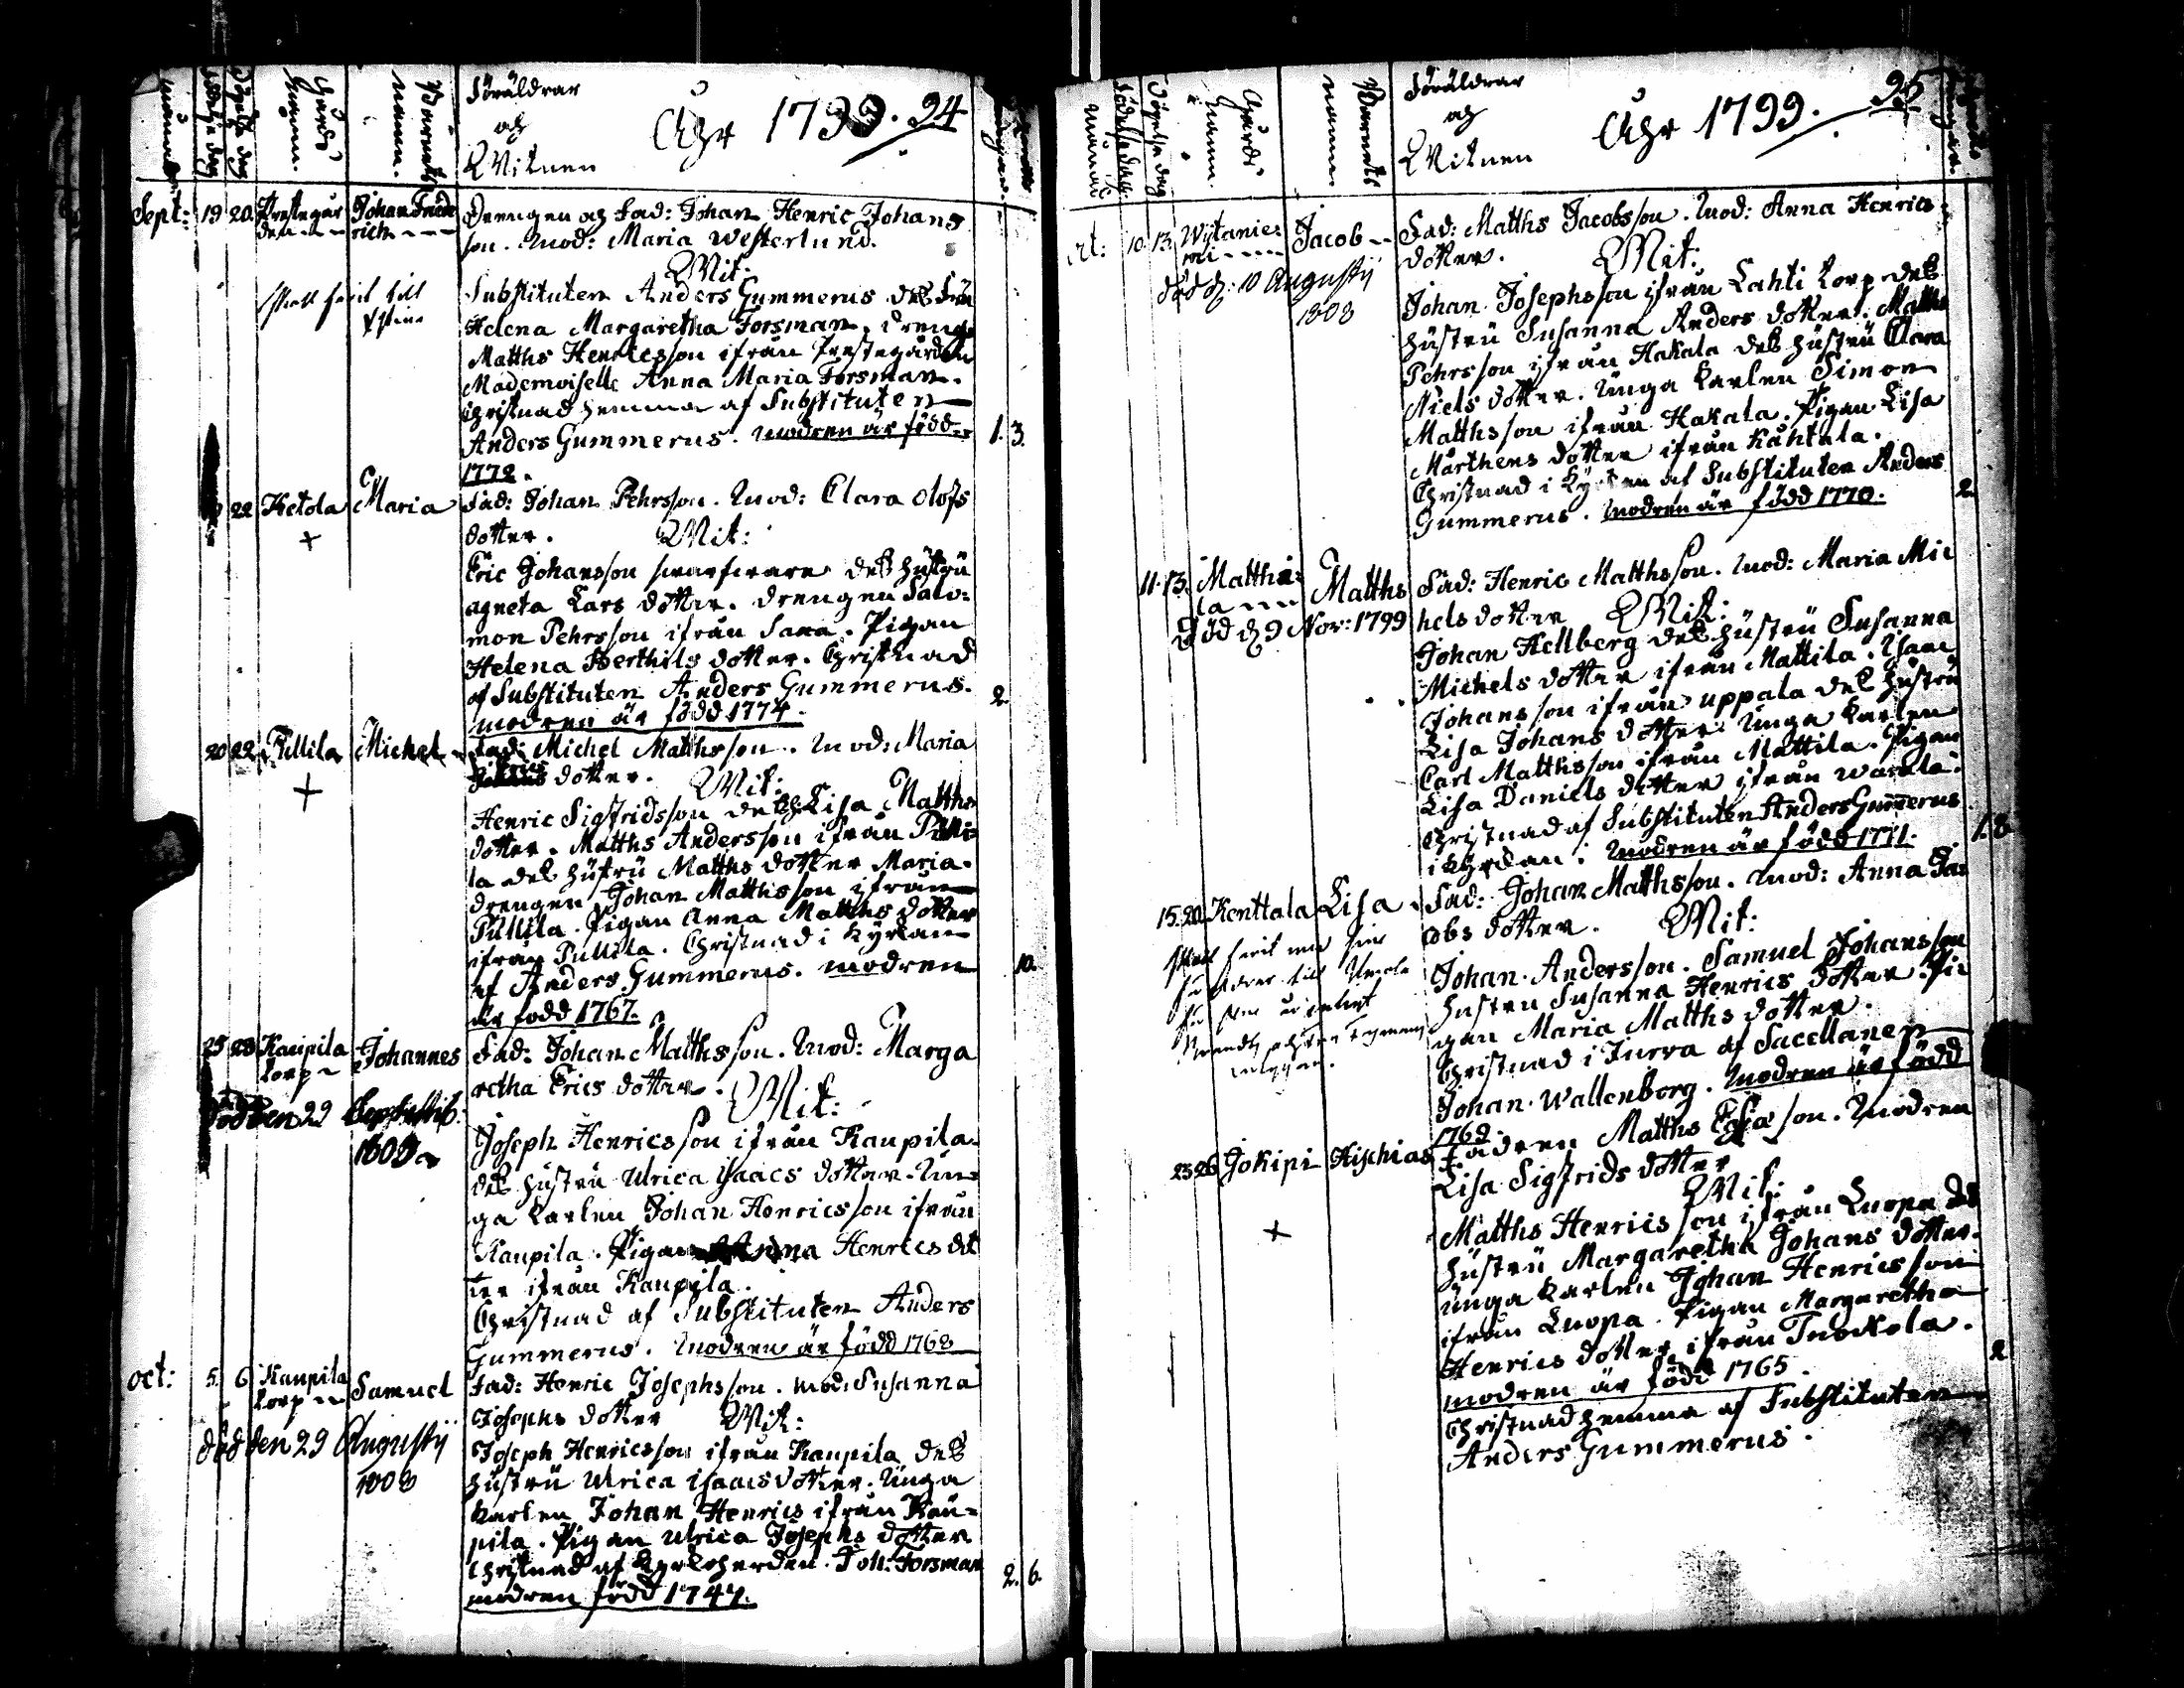 månad
födelse dag
döpelse dag
Gårds namn.
Barnets namn.
Föräldrar
och
Witnen
Åhr 1799. 94
Sept: 19 20. Prestegår Johan Frede
den rich
Drengen och Fad: Johan Henric Johans
son. Mod: Maria Westerlund.
Wit:
Substituten Anders Gummerus des Fru
Helena Margaretha Forsman. Dreng
Matths Henricsson ifrån Prestegården
Mademoiselle Anna Maria Forsman.
Christnad hemma af Substituten
Anders Gummerus. Modren är född 1. 3.
1772.
22 Ketola Maria
Fad: Johan Pehrsson. Mod: Clara Olofs
dotter. Wit:
Eric Johansson des hustru
agneta Lars dotter. Drengen Salo=
mon Pehrsson ifrån Sara. Pigan
Helena Berthils dotter. Christnad
af Substituten Anders Gummerus. 2.
modren är född 1774.
20 22 Pullila Michel
Fad: Michel Matthsson. Mod: Maria
dotter. Wit:
Henric Sigfridsson Lisa Matths
dotter. Matths Andersson ifrån Pulli=
la des hustru Matths dotter Maria.
drengen Johan Matthsson ifrån
Pullila. Pigan Anna Matths dotter
ifrån Pullila. Christnad i Kyrkan 10.
af Anders Gummerus. modren
är född 1767.
25 28 Kaupila Johannes
torp
död den 29
1808
Fad: Johan Matthsson. Mod: Marga
retha Erics dotter. Wit:
Joseph Henricsson ifrån Kaupila
des hustru Ulrica Isaacs dotter. Un=
ga Karlen Johan Henricsson ifrån
Kaupila. Pigan Anna Henrics dot
ter ifrån Kaupila.
Christnad af Substituten Anders
Gummerus. Modren är född 1768
oct: 5. 6 Kaupila Samuel
torp
död den 29 Augustij
1808
Fad: Henric Josephsson. Mod: Susanna
Josephs dotter Wit:
Joseph Henricsson ifrån Kaupila des
hustru Ulrica isaacs dotter. Unga
Karlen Johan Henrics ifrån Kau=
pila. Pigan Ulrica Josephs dotter
Christnad af Kyrkoherden Joh: Forsman 2. 6.
modren född 1747.
månad
födelse dag
döpelse dag
Gårds namn.
Barnets namn.
Föräldrar
och
Witnen
Åhr 1799. 95
10. 13. Wytanie= Jacob
mi
död d. 10 Augustij
1808
Fad: Matths Jacobsson. Mod: Anna Henrics
dotter. Wit:
Johan Josephsson ifrån Lahti torp des
hustru Susanna Anders dotter. Matths
Pehrsson ifrån Hakala des hustru Clara
Niels dotter. Unga Karlen Simon
Matthsson ifrån Hakala. Pigan Lisa
Marthens dotter ifrån Kähtala.
Christnad i Kyrkan af Substituten Anders 2.
Gummerus. Modren är född 1770.
11. 13. Matthi= Matths
la
Död d. 9 Nov: 1799
Fad: Henric Matthsson. Mod: Maria Mic
hels dotter Wit:
Johan Hellberg des hustru Susanna
Michels dotter ifrån Mattila. Isaac
Johansson ifrån uppala des hustru
Lisa Johans dotter Unga Karlen
Carl Matthsson ifrån Mattila. Pigan
Lisa Daniels dotter ifrån
Christnad af Substituten Anders Gummerus 1. 8.
i Kyrkan. Modren är född 1771.
15. 20. Kenttala Lisa
Fad: Johan Matthsson. Mod: Anna Ja=
cobs dotter. Wit:
Johan Andersson. Samuel Johansson
hustru Susanna Henrics dotter. Pi=
gan Maria Matths dotter.
Christnad i Jurva af Sacellanen
Johan Wallenberg. Modren är född
1769.
23 26 Jokipi Hischias
Fadren Matths son. Modren
Lisa Sigfrids dotter
Wit:
Matths Henrics son ifrån Luopa des
hustru Margaretha Johans dotter.
unga Karlen Johan Henricsson
ifrån Luopa. Pigan Margaretha
Henrics dotter ifrån Tuokola. 2
modren är född 1765.
Christnad hemma af Substituten
Anders Gummerus.